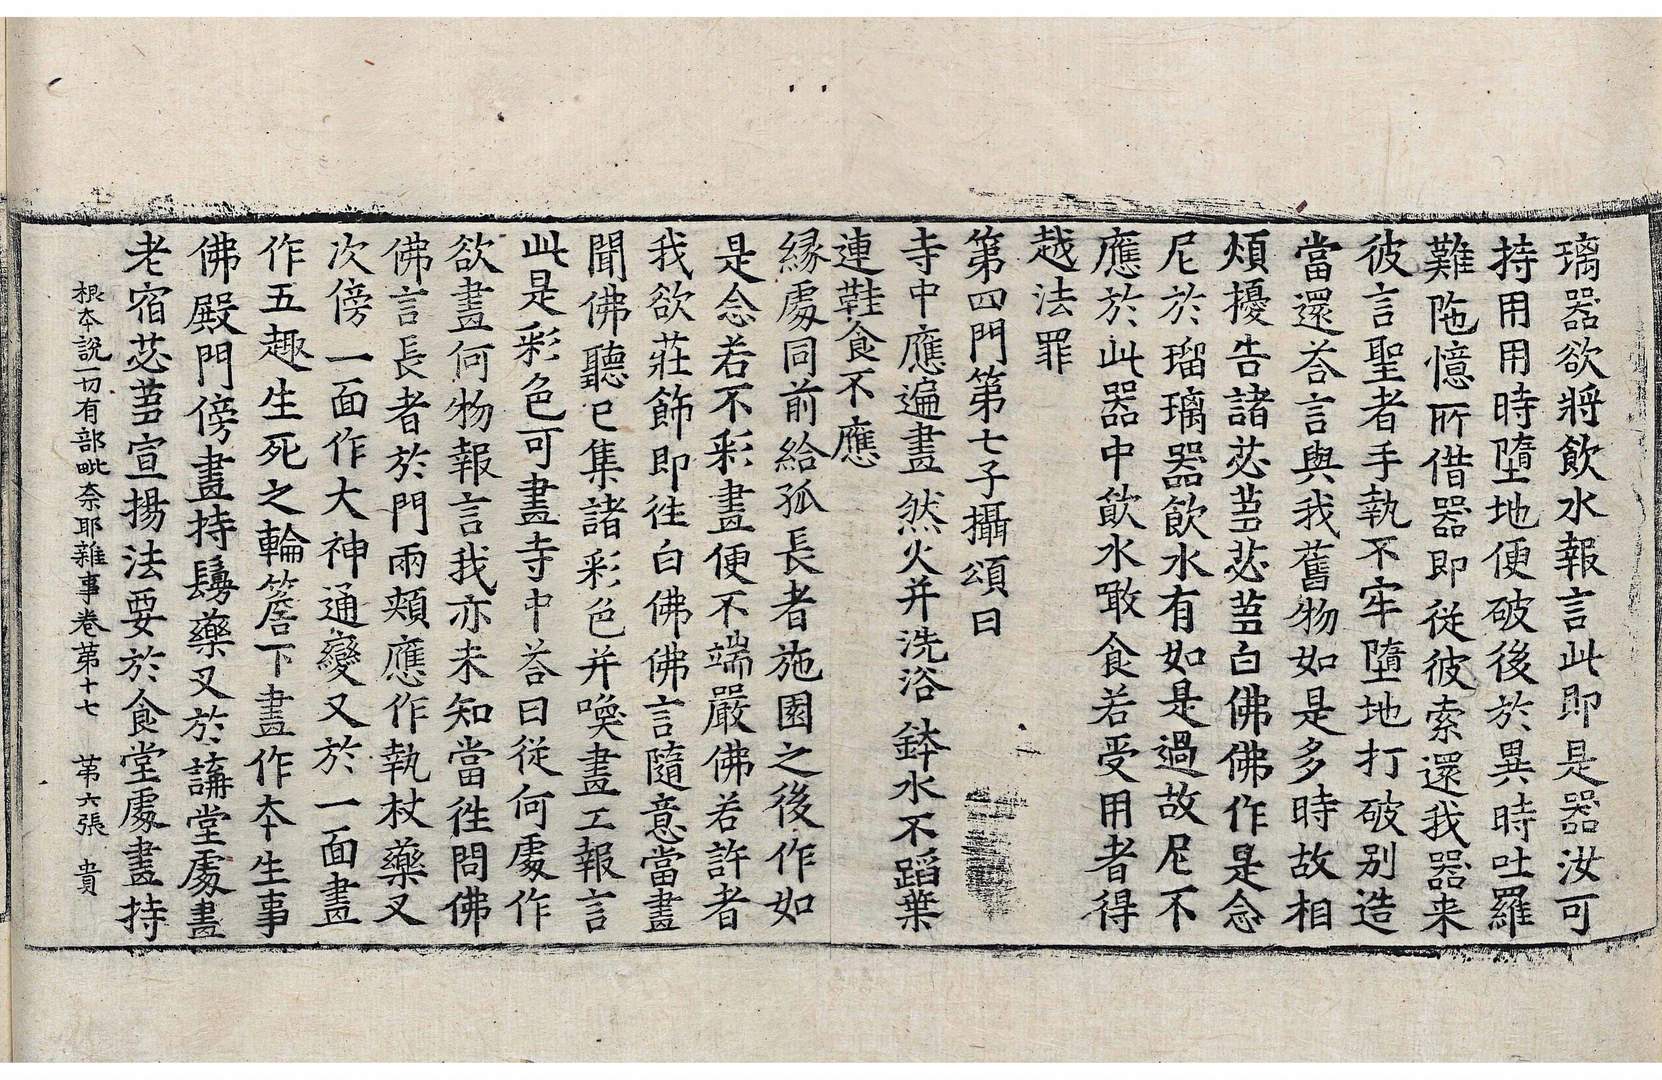 璃器欲將飲水報言此即是器汝可
持用用時墮地便破後於異時吐羅
難陁憶所借器即従彼索還我器来
彼言聖者手執不牢墮地打破別造
當還荅言與我舊物如是多時故相
煩擾告諸苾蒭苾蒭白佛佛作是念
尼於瑠璃器飲水有如是過故尼不
應於此器中飲水噉食若受用者得
越法罪
第四門第七子攝頌曰
寺中應遍畫然火并洗浴鉢水不蹈葉
連鞋食不應
縁處同前給孤長者施園之後作如
是念若不彩畫便不端嚴佛若許者
我欲莊飾即往白佛佛言隨意當畫
聞佛聽已集諸彩色并喚畫工報言
此是彩色可畫寺中荅曰従何處作
欲畫何物報言我亦未知當往問佛
佛言長者於門兩頰應作執杖藥叉
次傍一面作大神通變又於一面畫
作五趣生死之輪簷下畫作夲生事
佛殿門傍畫持鬘藥叉於講堂處畫
老宿苾蒭宣揚法要於食堂處畫持
根夲説一切有部毗奈耶雜事卷第十七 第六張 貴